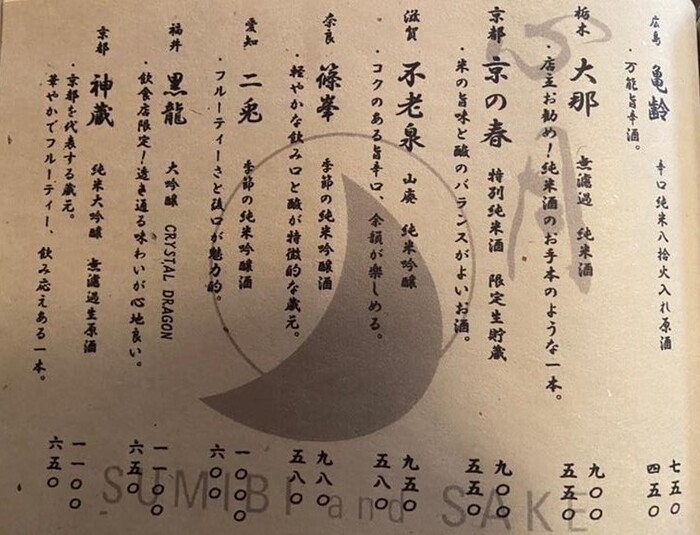 広島 亀齢 辛口純米八拾火入れ原酒 七五〇
・万能旨辛酒。 四五〇
栃木 大那 無濾過 純米酒 九〇〇
・店主お勧め!純米酒のお手本のような一本。 五五〇
京都 京の春 特別純米酒 限定生貯蔵 九〇〇
・米の旨味と酸のバランスがよいお酒。 五五〇
滋賀 不老泉 山廃 純米吟醸 九五〇
・コクのある旨辛口、余韻が楽しめる。 五八〇
奈良 篠峯 季節の純米吟醸酒 九八〇
・軽やかな飲み口と酸が特徴的な蔵元。 五八〇
愛知 二兎 季節の純米吟醸酒 一〇〇〇
・フルーティーさと後口が魅力的。 六〇〇
福井 黒龍 大吟醸 CRYSTAL DRAGON 一一〇〇
・飲食店限定!透き通る味わいが心地良い。 六五〇
京都 神蔵 純米大吟醸 無濾過生原酒 一一〇〇
・京都を代表する蔵元。 六五〇
華やかでフルーティー、飲み応えある一本。
SUMIBI and SAKE